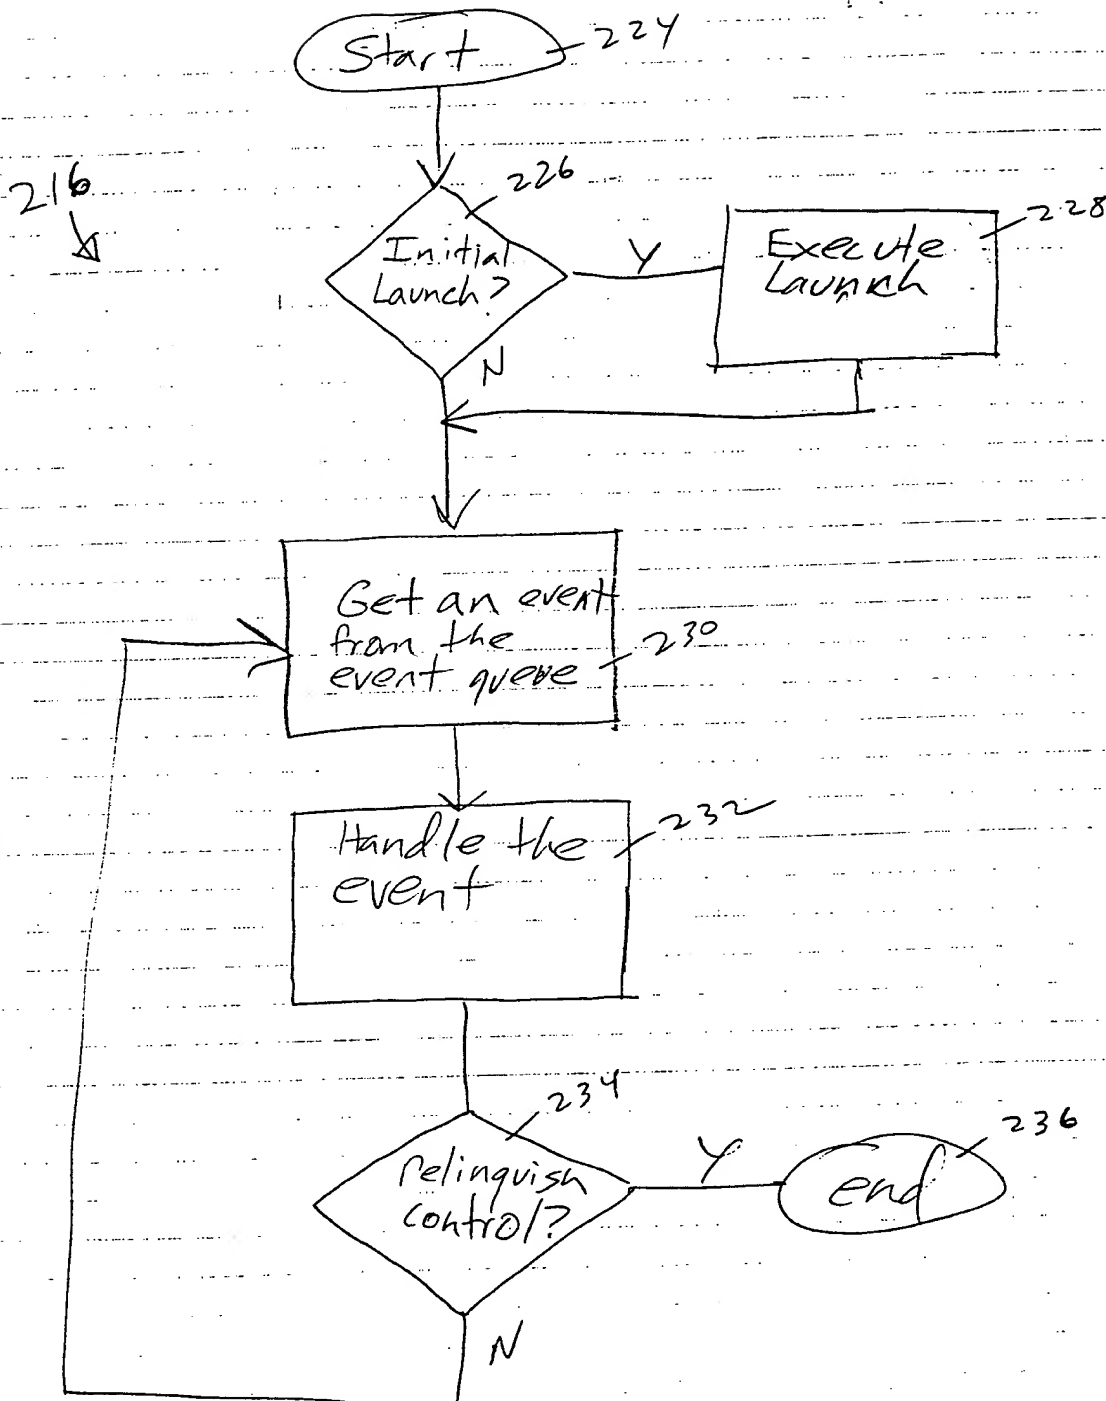 Start 224
216
226
228
Initial
Launch?
Y
Execute
Launch
N
Get an event
from the
event queue
230
Handle the
event
232
234
relinquish
control?
Y
236
end
N